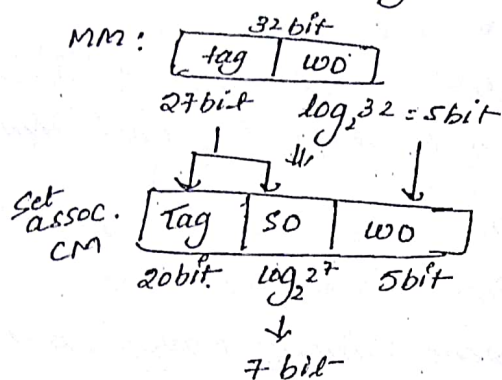 32bit
MM: tag WO
27bit log₂32 = 5bit
Set assoc. CM Tag SO WO
20bit. log₂2⁷ 5bit
7 bit